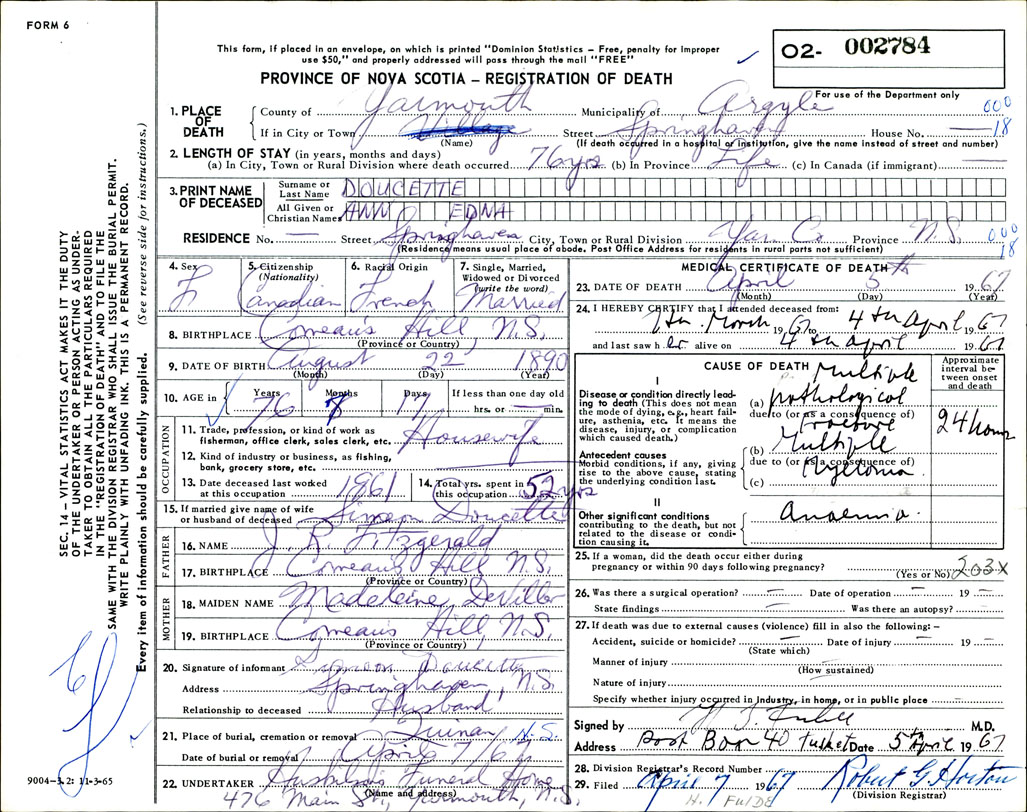 FORM 6
This form, if placed in an envelope, on which is printed "Dominion Statistics – Free, penalty for improper
use $50," and properly addressed will pass through the mail "FREE"
O2- 002784
PROVINCE OF NOVA SCOTIA – REGISTRATION OF DEATH
For use of the Department only
1. PLACE OF DEATH
County of Yarmouth Municipality of Argyle 000
If in City or Town Village Street Springhaven House No. — 18
(Name) (If death occurred in a hospital or institution, give the name instead of street and number)
2. LENGTH OF STAY (in years, months and days)
(a) In City, Town or Rural Division where death occurred 76 yrs (b) In Province Life (c) In Canada (if immigrant) —
3. PRINT NAME OF DECEASED
Surname or Last Name DOUCETTE
All Given or Christian Names ANN EDNA
RESIDENCE No. — Street Springhaven City, Town or Rural Division Yar Co Province N.S. 000
(Residence means usual place of abode. Post Office Address for residents in rural parts not sufficient) 18
4. Sex F
5. Citizenship (Nationality) Canadian
6. Racial Origin French
7. Single, Married, Widowed or Divorced (write the word) Married
8. BIRTHPLACE Comeau's Hill N.S.
(Province or Country)
9. DATE OF BIRTH August 22 1890
(Month) (Day) (Year)
10. AGE in Years 76 Months 8 Days If less than one day old
hrs. or — min.
OCCUPATION
11. Trade, profession, or kind of work as
fisherman, office clerk, sales clerk, etc. Housewife
12. Kind of industry or business, as fishing,
bank, grocery store, etc.
13. Date deceased last worked
at this occupation 1961
14. Total yrs. spent in
this occupation 52 yrs
15. If married give name of wife
or husband of deceased Simeon Doucette
FATHER
16. NAME J. R. Fitzgerald
17. BIRTHPLACE Comeau's Hill N.S.
(Province or Country)
MOTHER
18. MAIDEN NAME Madeleine DeViller
19. BIRTHPLACE Comeau's Hill, N.S.
(Province or Country)
20. Signature of informant Simeon Doucette
Address Springhaven, N.S.
Relationship to deceased Husband
21. Place of burial, cremation or removal Quinan N.S.
Date of burial or removal April 7/67
22. UNDERTAKER Funeral Home
(Name and address)
476 Main St., Yarmouth, N.S.
MEDICAL CERTIFICATE OF DEATH
23. DATE OF DEATH April 5th 1967
(Month) (Day) (Year)
24. I HEREBY CERTIFY that I attended deceased from:
7th March 1967 to 4th April 1967
and last saw her alive on 4th April 1967
CAUSE OF DEATH
Approximate interval between onset and death
I
Disease or condition directly leading to death (This does not mean
the mode of dying, e.g., heart failure, asthenia, etc. It means the
disease, injury, or complication
which caused death.)
(a) Multiple pathological fracture 24 hours
due to (or as a consequence of)
Antecedent causes
Morbid conditions, if any, giving
rise to the above cause, stating
the underlying condition last.
(b) Multiple Myeloma
due to (or as a consequence of)
(c)
II
Other significant conditions
contributing to the death, but not
related to the disease or condition causing it.
Anaemia.
25. If a woman, did the death occur either during
pregnancy or within 90 days following pregnancy? 203X
(Yes or No)
26. Was there a surgical operation? — Date of operation — 19 —
State findings — Was there an autopsy? —
27. If death was due to external causes (violence) fill in also the following: –
Accident, suicide or homicide? — Date of injury — 19 —
(State which)
Manner of injury
(How sustained)
Nature of injury
Specify whether injury occurred in Industry, in home, or in public place —
Signed by M.D.
Address Post Box 40 Tusket Date 5 April 1967
28. Division Registrar's Record Number
29. Filed April 7 1967 Robert G. Horton
(Division Registrar)
SEC. 14 – VITAL STATISTICS ACT MAKES IT THE DUTY
OF THE UNDERTAKER OR PERSON ACTING AS UNDER-
TAKER TO OBTAIN ALL THE PARTICULARS REQUIRED
IN THE "REGISTRATION OF DEATH" AND TO FILE THE
SAME WITH THE DIVISION REGISTRAR WHO SHALL ISSUE THE BURIAL PERMIT.
WRITE PLAINLY WITH UNFADING INK. THIS IS A PERMANENT RECORD.
Every item of information should be carefully supplied. (See reverse side for instructions.)
9004-3.2: 11-3-65